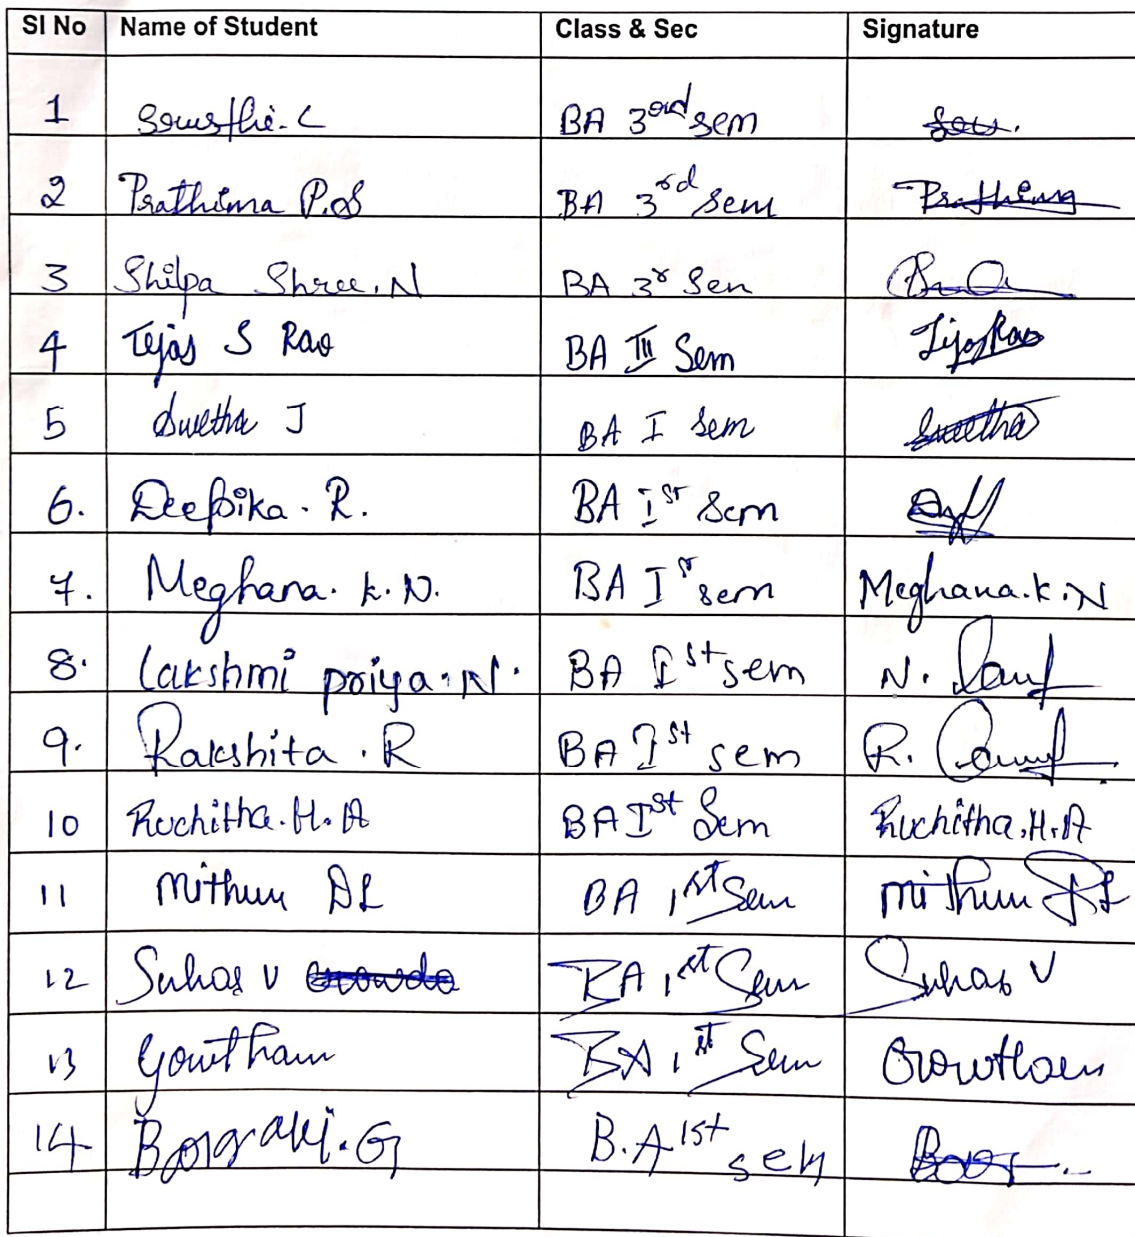 Sl No Name of Student Class & Sec Signature
1 BA 3rd sem
2 Prathima P.S BA 3rd Sem Prathima
3 Shilpa Shree.N BA 3r Sem
4 Tejas S Rao BA III Sem Tejas Rao
5 Swetha J BA I Sem Swetha
6. Deepika. R. BA Ist Sem
7. Meghana. K. N. BA Ist sem Meghana.K.N
8. Lakshmi priya. N. BA Ist sem N.
9. Rakshita. R BA Ist sem R.
10 Ruchitha. H. A BA Ist Sem Ruchitha. H. A
11 Mithun DL BA 1st Sem Mithun DL
12 Suhas V Gowda BA 1st Sem Suhas V
13 Gowtham BA 1st Sem Gowtham
14 B.A 1st sem